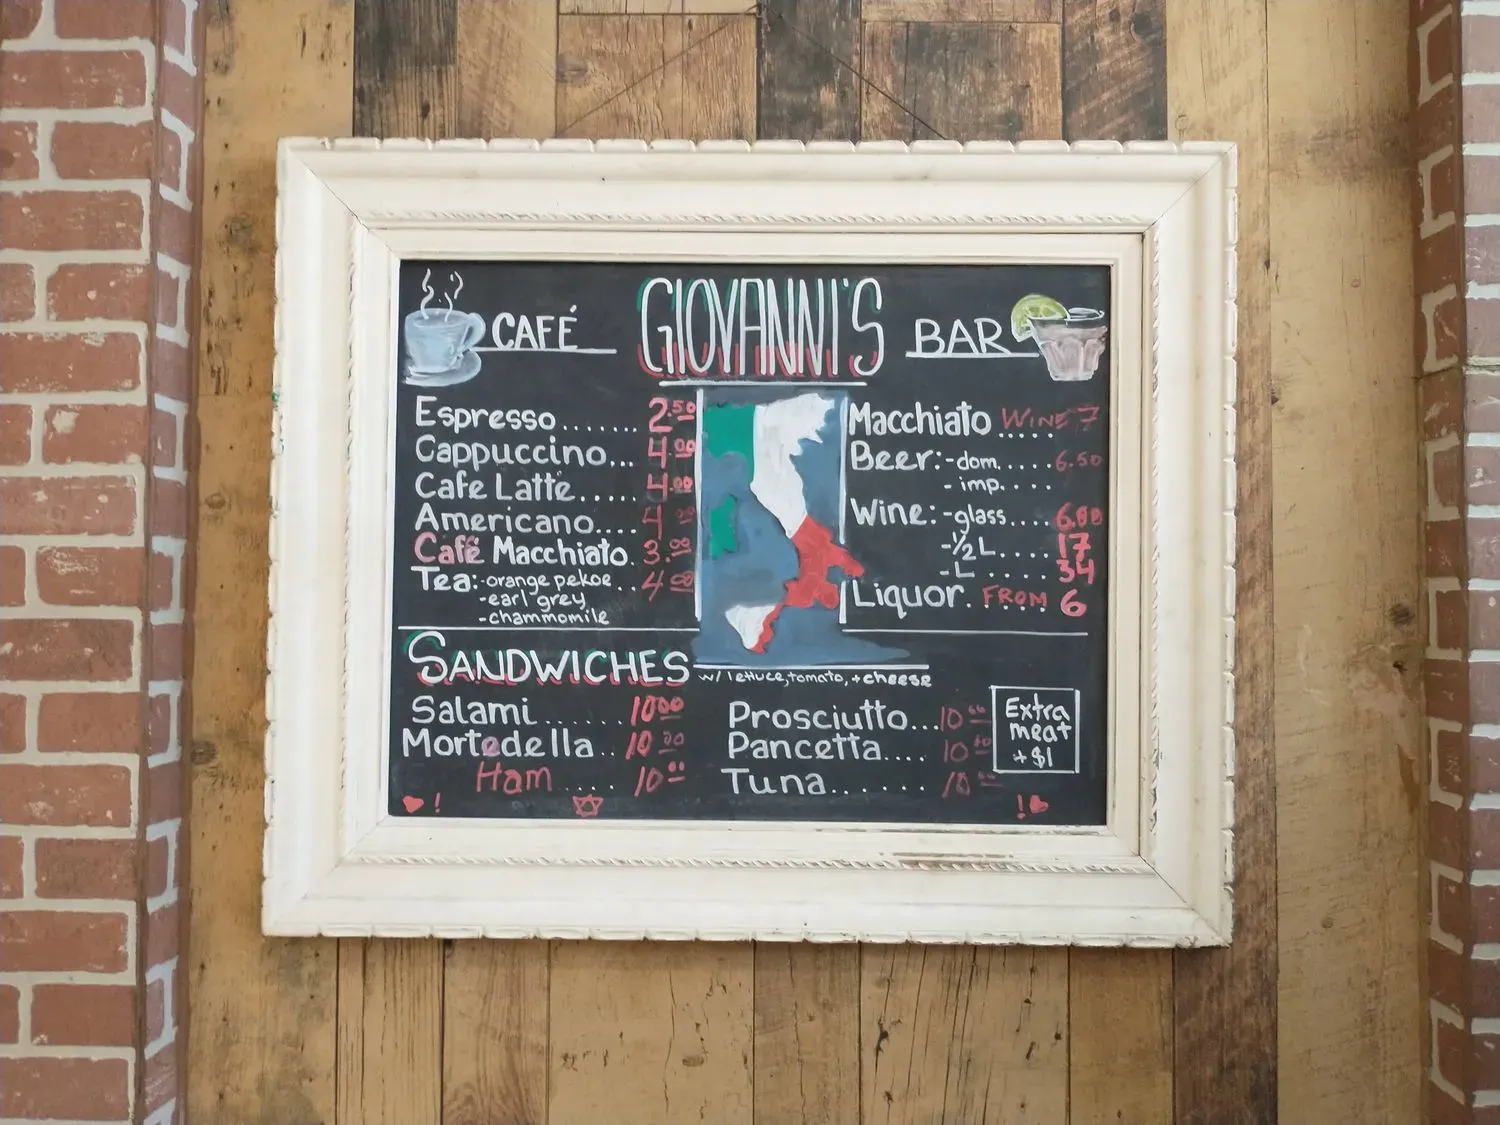 CAFÉ GIOVANNI'S BAR
Espresso....... 2.50
Cappuccino... 4.00
Cafe Latte..... 4.00
Americano.... 4.00
Café Macchiato. 3.00
Tea:-orange pekoe... 4.00
-earl grey
-chammomile
Macchiato WINE 7
Beer:-dom.....6.50
- imp....
Wine:-glass.... 6.00
-½L.... 17
-L .... 34
Liquor. FROM 6
SANDWICHES w/ lettuce, tomato, + cheese
Salami....... 10.00
Mortedella.. 10.00
Ham..... 10.00
Prosciutto...10.00
Pancetta.... 10.00
Tuna....... 10.00
Extra
meat
+ $1
!
!